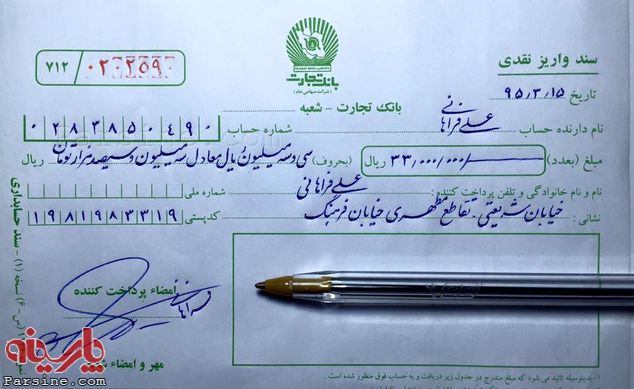 سند واریز نقدی
بانک تجارت
(شرکت سهامی عام)
۷۱۲
تاریخ ۹۵.۳.۱۵
بانک تجارت - شعبه
نام دارنده حساب علی فراهانی شماره حساب 0283850490
مبلغ (بعدد) ۳۳,۰۰۰,۰۰۰/ ریال (بحروف) سی و سه میلیون ریال معادل سه میلیون و سیصد هزار تومان ریال
نام و نام خانوادگی و تلفن پرداخت کننده: علی فراهانی شماره ملی
نشانی: خیابان شریعتی - تقاطع مطهری خیابان فرهنگ کدپستی 1981983319
امضاء پرداخت کننده
فراهانی
مهر و امضاء
۱- بدینوسیله تائید می شود که مبلغ مندرج در جدول زیر دریافت و به حساب فوق منظور شده است.
سند حسابداری (۱) نسخه
پارسینه
Parsine.com